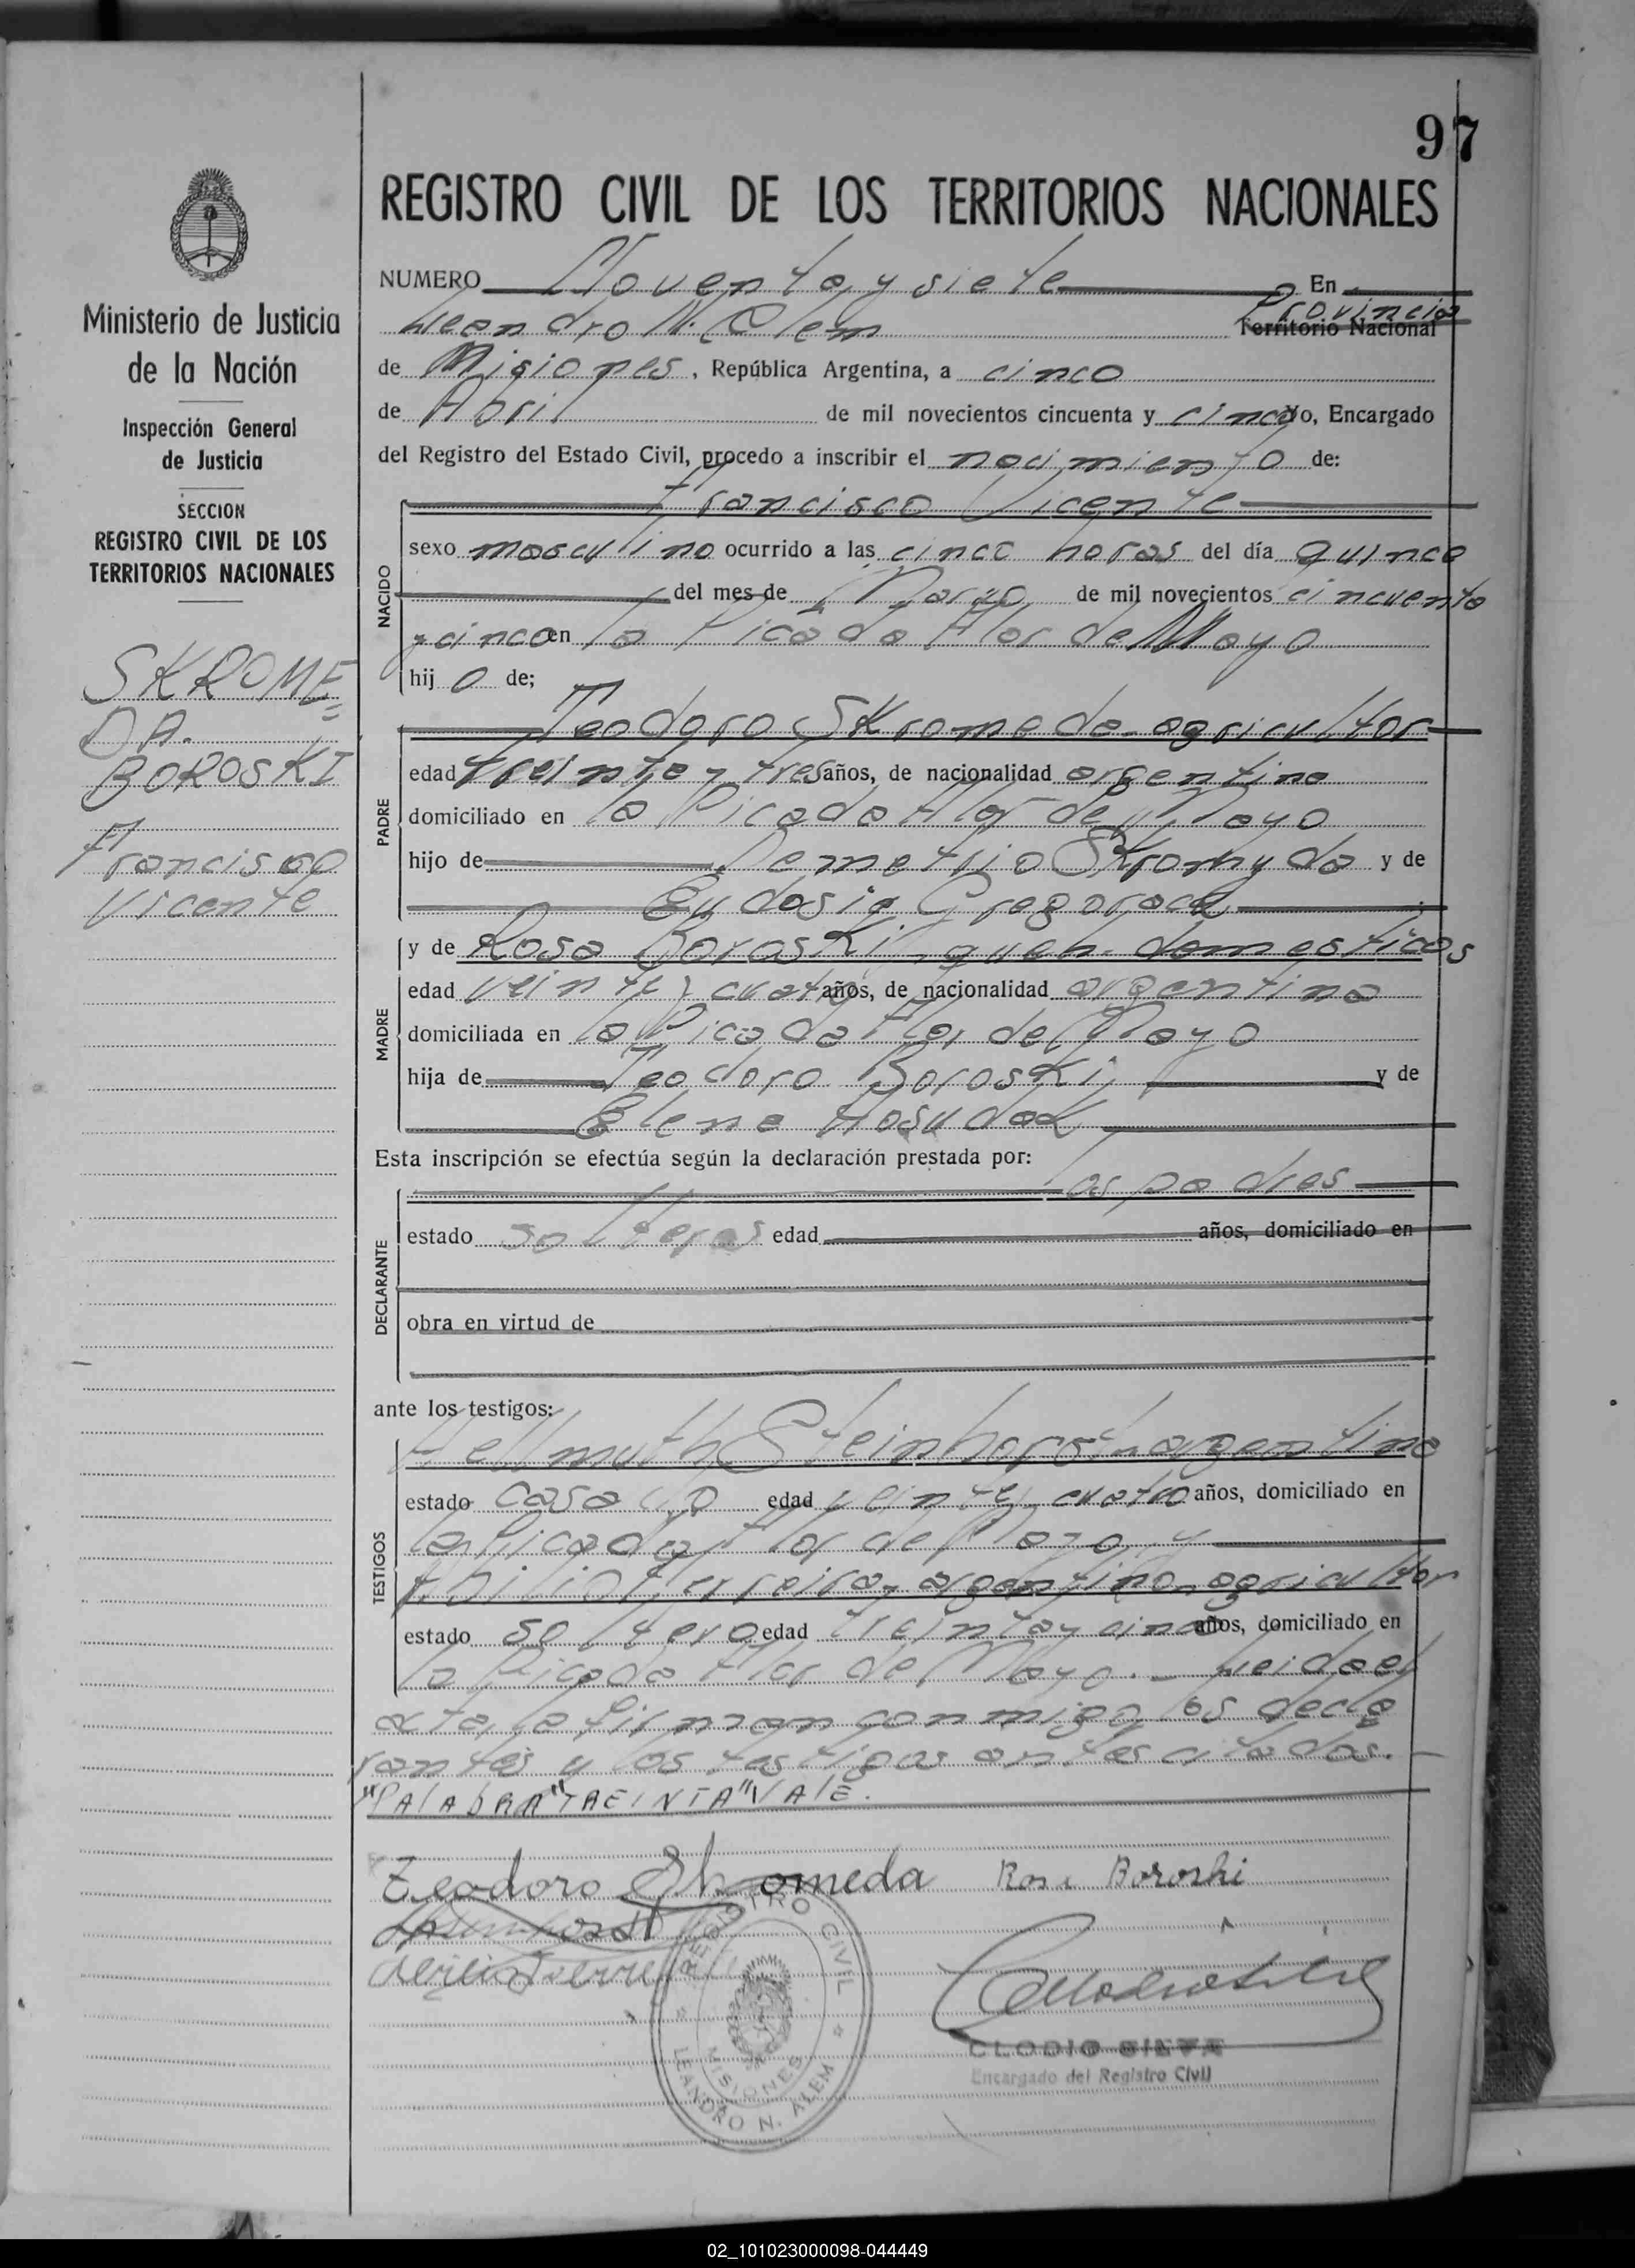 97
REGISTRO CIVIL DE LOS TERRITORIOS NACIONALES
Ministerio de Justicia
de la Nación
Inspección General
de Justicia
SECCION
REGISTRO CIVIL DE LOS
TERRITORIOS NACIONALES
SKROME=
DA.
BOROSKI
Francisco
Vicente
NUMERO Noventa y siete En
Leandro N. Alem Provincia Territorio Nacional
de Misiones, República Argentina, a cinco
de Abril de mil novecientos cincuenta y cinco Yo, Encargado
del Registro del Estado Civil, procedo a inscribir el nacimiento de:
Francisco Vicente
NACIDO
sexo masculino ocurrido a las cinco horas del día quince
del mes de Marzo de mil novecientos cincuenta
y cinco en la Picada Flor de Mayo
hijo de;
Teodoro Skromeda - agricultor
PADRE
edad treinta y tres años, de nacionalidad argentina
domiciliado en la Picada Flor de Mayo
hijo de Demetrio Skromyda y de
Eudosia
y de Rosa Boroski - queh. domesticos
MADRE
edad veinte y cuatro años, de nacionalidad argentina
domiciliada en la Picada Flor de Mayo
hija de Teodoro Boroski y de
Elena
Esta inscripción se efectúa según la declaración prestada por:
los padres
DECLARANTE
estado solteros edad años, domiciliado en
obra en virtud de
ante los testigos:
Hellmuth Steinhorst - argentino
TESTIGOS
estado casado edad veinte y cuatro años, domiciliado en
la Picada Flor de Mayo y
Ferreira - argentino - agricultor
estado soltero edad treinta y cinco años, domiciliado en
la Picada Flor de Mayo. - Leida el
acta, la firman conmigo los decla
rantes y los testigos antes citados. -
"PALABRA "TREINTA" VALE.
Teodoro Skromeda Rosa Boroski
REGISTRO CIVIL
MISIONES
LEANDRO N. ALEM
CLODIO SILVA
Encargado del Registro Civil
02_101023000098-044449